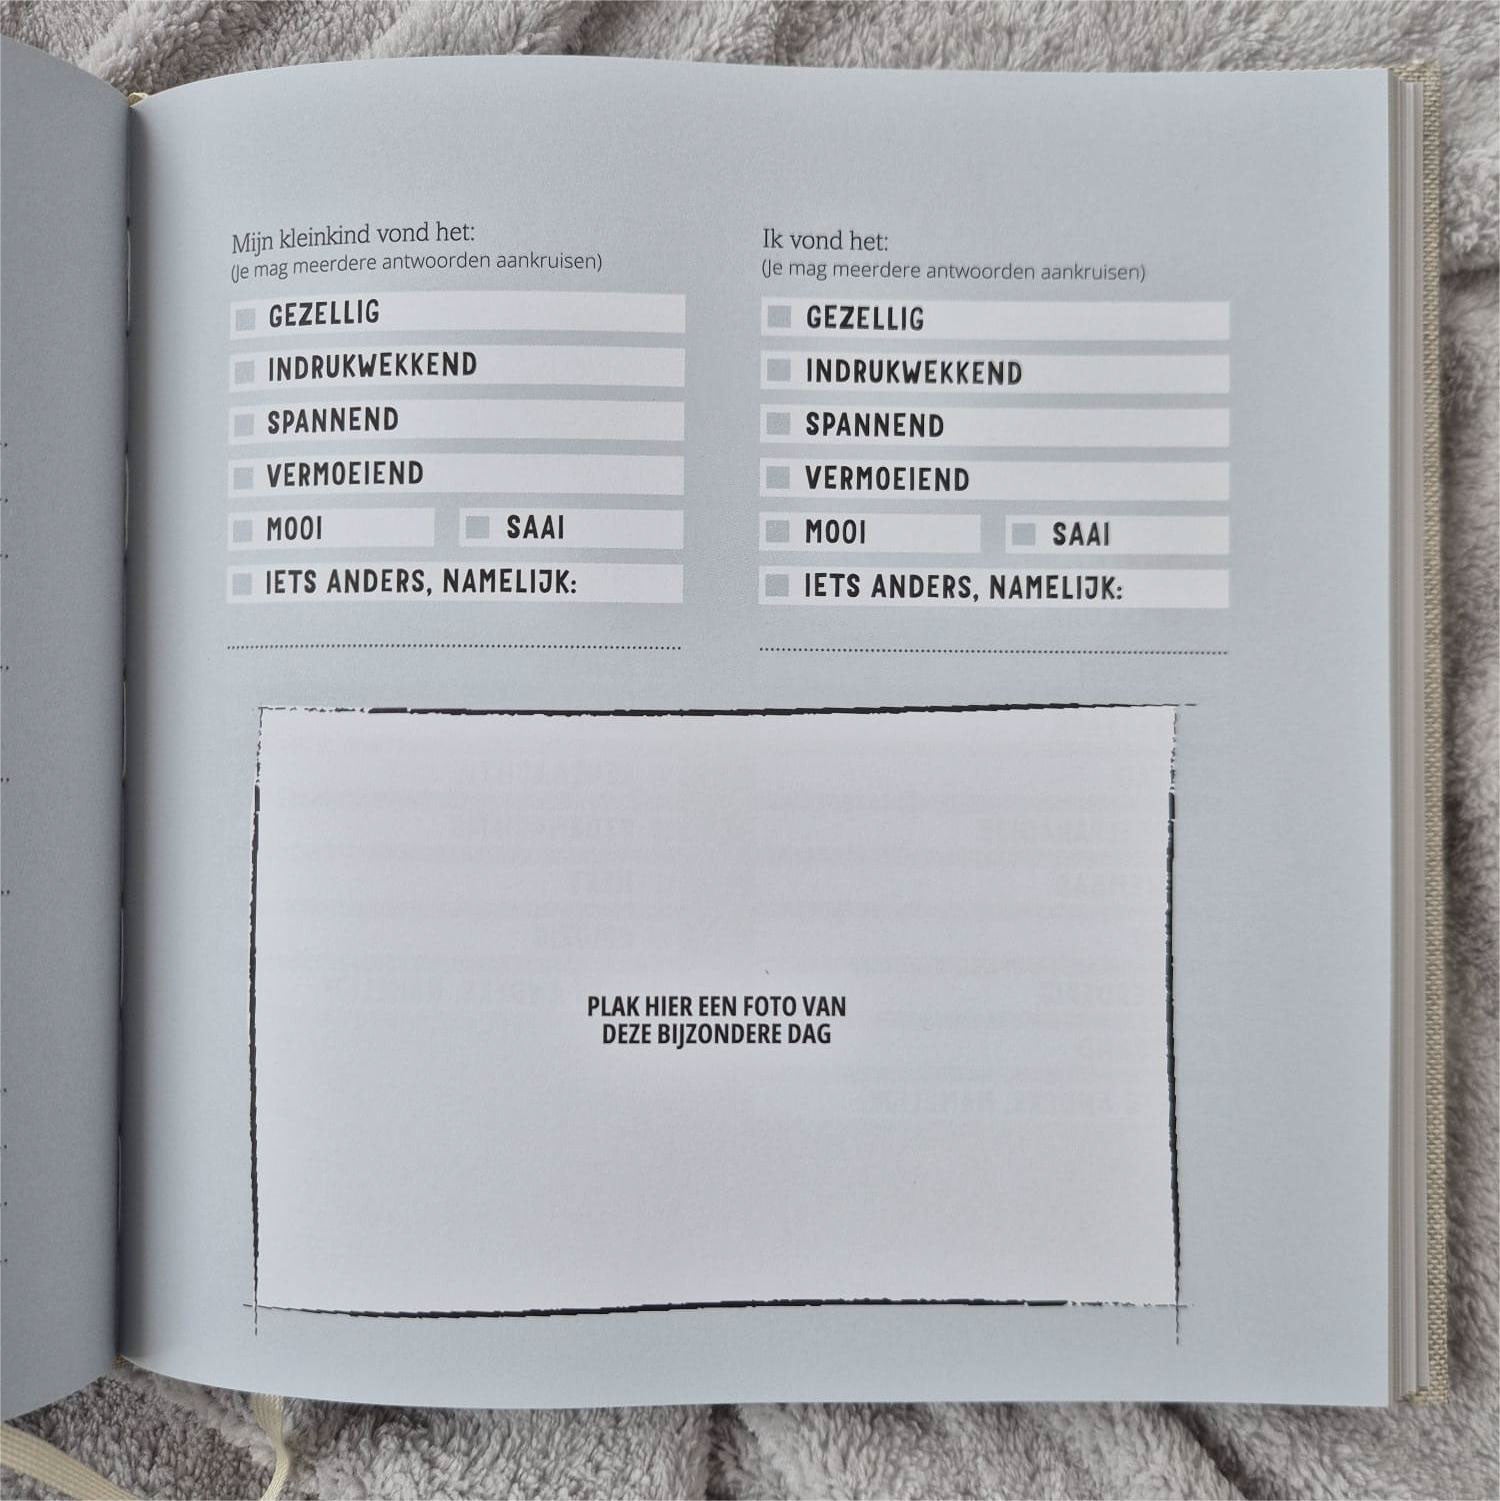 Mijn kleinkind vond het:
(Je mag meerdere antwoorden aankruisen)
GEZELLIG
INDRUKWEKKEND
SPANNEND
VERMOEIEND
MOOI SAAI
IETS ANDERS, NAMELIJK:
Ik vond het:
(Je mag meerdere antwoorden aankruisen)
GEZELLIG
INDRUKWEKKEND
SPANNEND
VERMOEIEND
MOOI SAAI
IETS ANDERS, NAMELIJK:
PLAK HIER EEN FOTO VAN
DEZE BIJZONDERE DAG